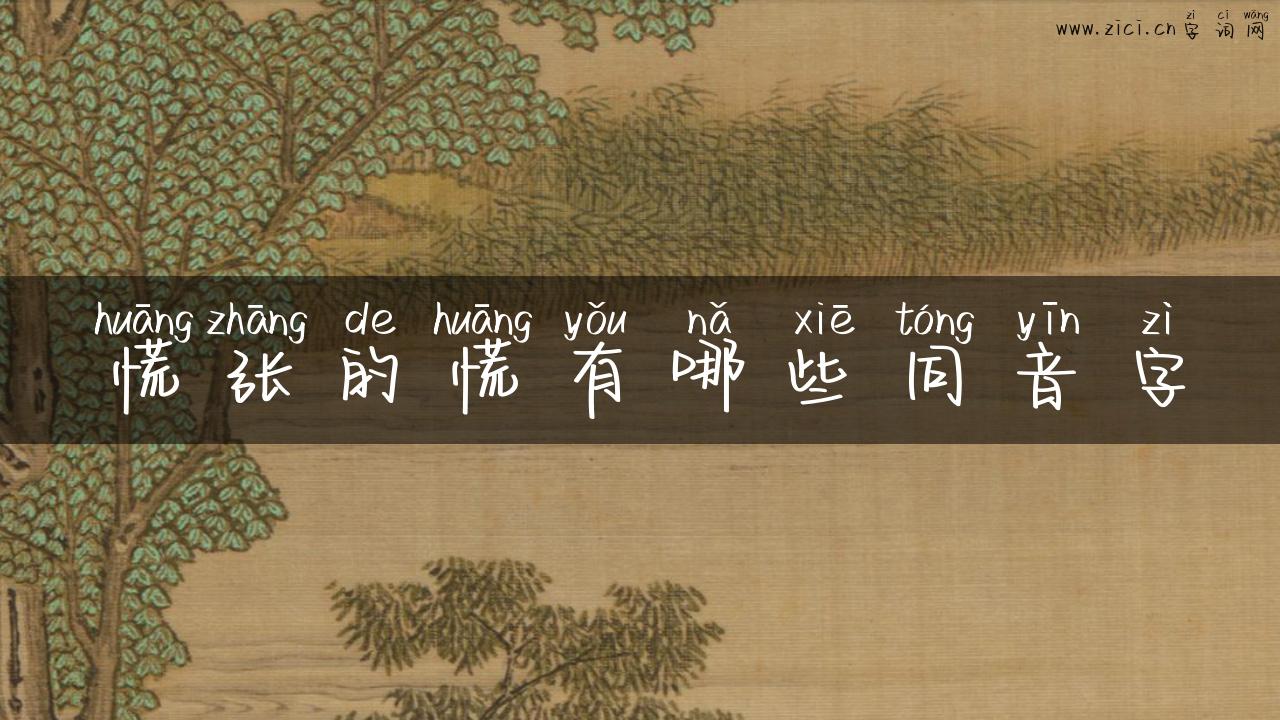 zì cí wǎng
www.zici.cn字词网
huāng zhāng de huāng yǒu nǎ xiē tóng yīn zì
慌张的慌有哪些同音字